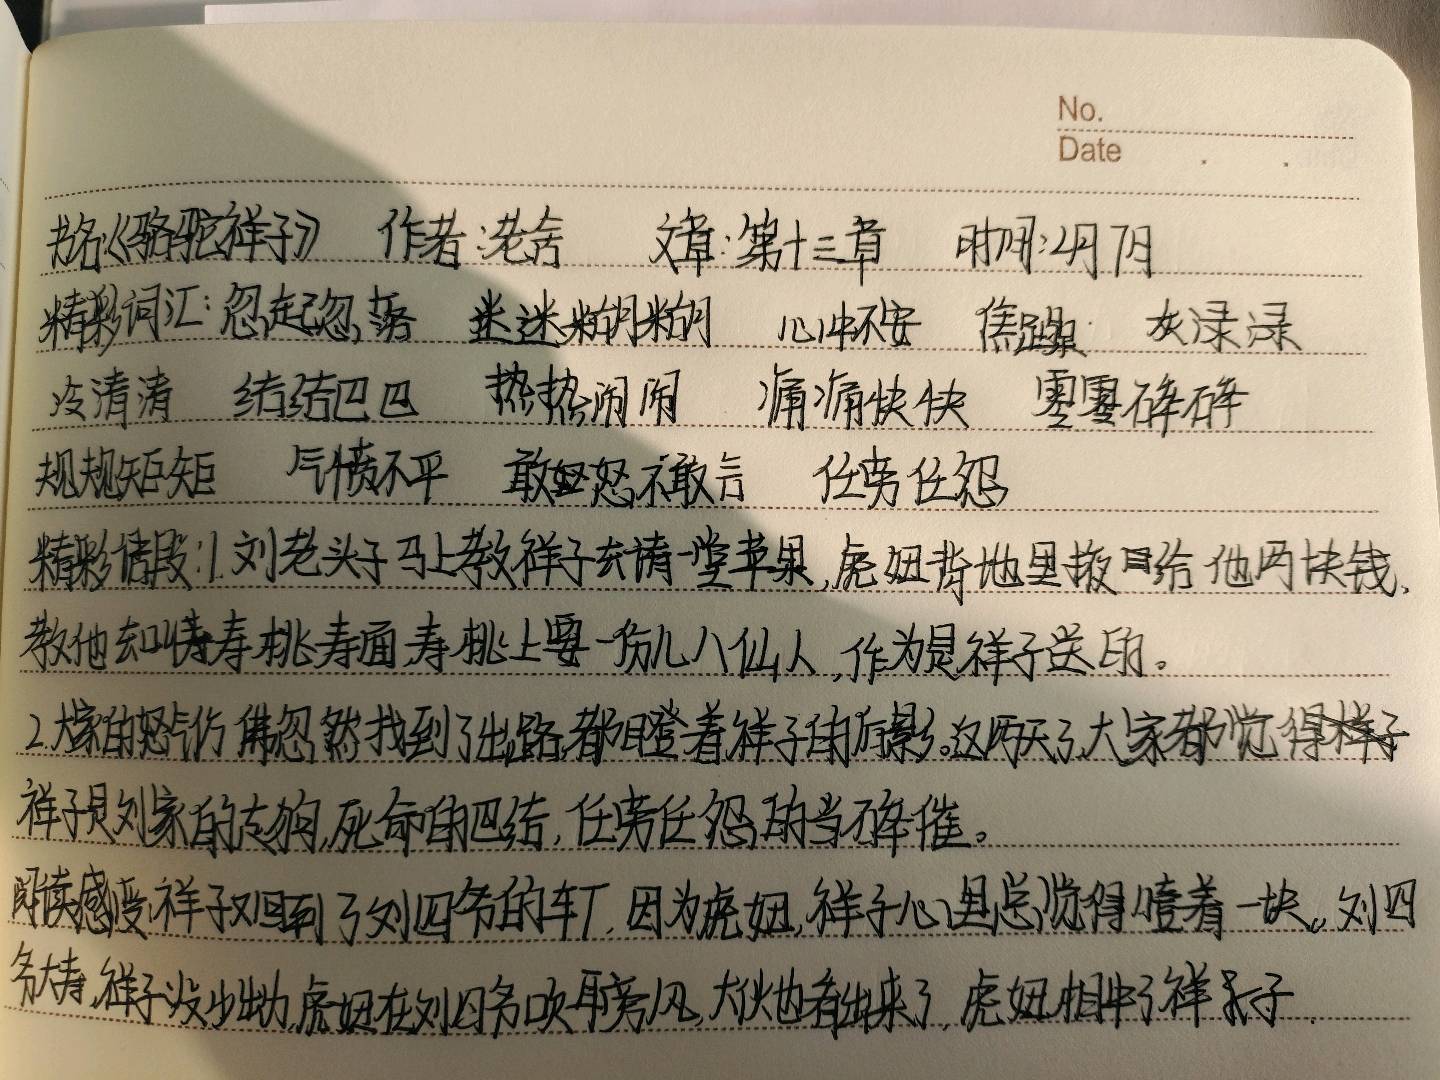 No.
Date . .
书名:《骆驼祥子》 作者:老舍 文章:第十三章 时间:2月7日
精彩词汇:忽起忽落 迷迷糊糊 心中不安 焦躁 灰渌渌
冷清清 结结巴巴 热热闹闹 痛痛快快 零零碎碎
规规矩矩 气愤不平 敢怒不敢言 任劳任怨
精彩情段:1.刘老头子马上教祥子去请一堂苹果,虎妞背地里掖给他两块钱,
教他去叫寿桃寿面,寿桃上要一份儿八仙人,作为是祥子送的。
2.大家的怒气仿佛忽然找到了出路,都瞪着祥子的后影。这两天了,大家都觉得
祥子是刘家的走狗,死命的巴结,任劳任怨的当碎催。
阅读感受:祥子又回到了刘四爷的车厂,因为虎妞,祥子心里总觉得噎着一块。刘四
爷大寿,祥子没少出力,虎妞在刘四爷吹耳旁风,大伙也看出来了,虎妞相中了祥子.